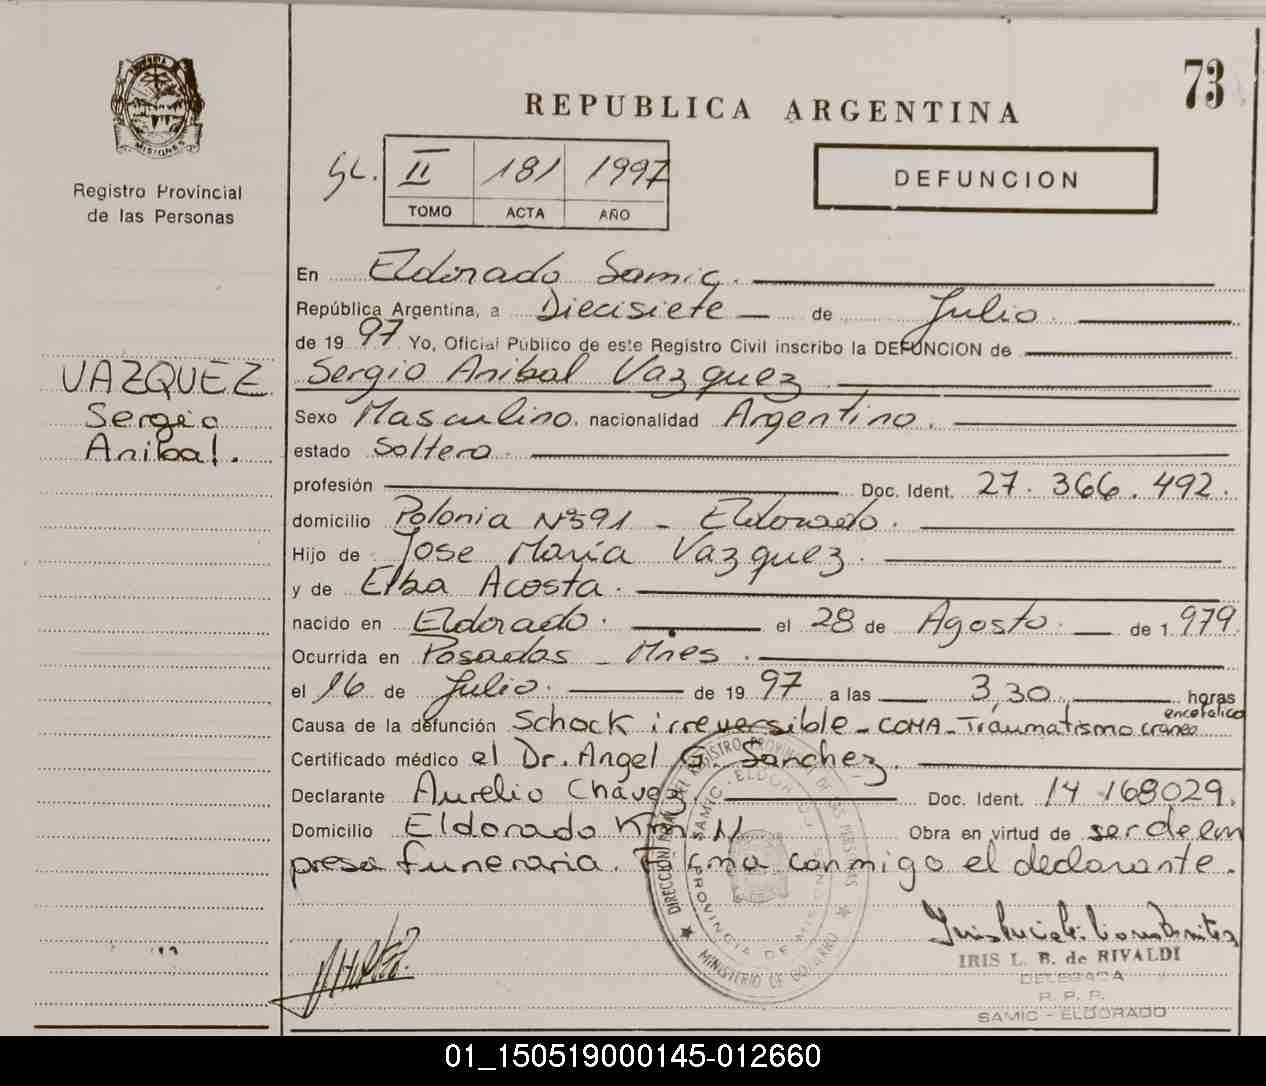 73
REPUBLICA ARGENTINA
MISIONES
Registro Provincial
de las Personas
DEFUNCION
II 181 1997
TOMO ACTA AÑO
VAZQUEZ
Sergio
Anibal.
En Eldorado Samic.
República Argentina, a Diecisiete de Julio
de 1997 Yo, Oficial Público de este Registro Civil inscribo la DEFUNCION de
Sergio Anibal Vazquez
Sexo Masculino. nacionalidad Argentino.
estado Soltero.
profesión Doc. Ident. 27.366.492.
domicilio Polonia Nº391 - Eldorado.
Hijo de Jose Maria Vazquez.
y de Elba Acosta.
nacido en Eldorado. el 28 de Agosto. de 1.979.
Ocurrida en Posadas - Mnes.
el 16 de Julio. de 1997 a las 3,30 horas
Causa de la defunción Schock irreversible - COMA - Traumatismo craneo encefalico
Certificado médico el Dr. Angel G. Sanchez.
Declarante Aurelio Chavez. Doc. Ident. 14 168029.
Domicilio Eldorado Km 11 Obra en virtud de ser de em
presa funeraria. Firma conmigo el declarante.
DIRECCION REGISTRO PROVINCIAL DE LAS PERSONAS
SAMIC - ELDORADO
PROVINCIA DE MISIONES
MINISTERIO DE GOBIERNO
IRIS L. B. de RIVALDI
DELEGADA
R. P. P.
SAMIC - ELDORADO
01_150519000145-012660